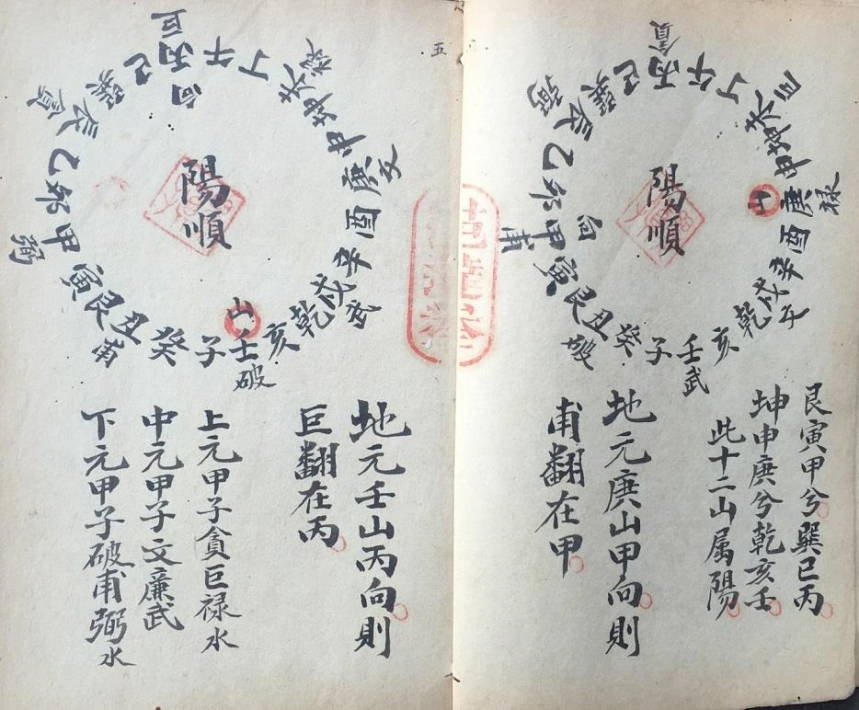 壬子癸丑艮寅甲卯乙辰巽巳丙午丁未坤申庚酉辛戌乾亥
武
破
甫
弼
貪
巨
禄
山
向
陽順
艮寅甲兮巽巳丙
坤申庚兮乾亥壬
此十二山属陽
地元庚山甲向則
甫翻在甲
五
壬子癸丑艮寅甲卯乙辰巽巳丙午丁未坤申庚酉辛戌乾亥
破
甫
弼
貪
巨
禄
文
武
山
向
陽順
地元壬山丙向則
巨翻在丙
上元甲子貪巨禄水
中元甲子文廉武
下元甲子破甫弼水